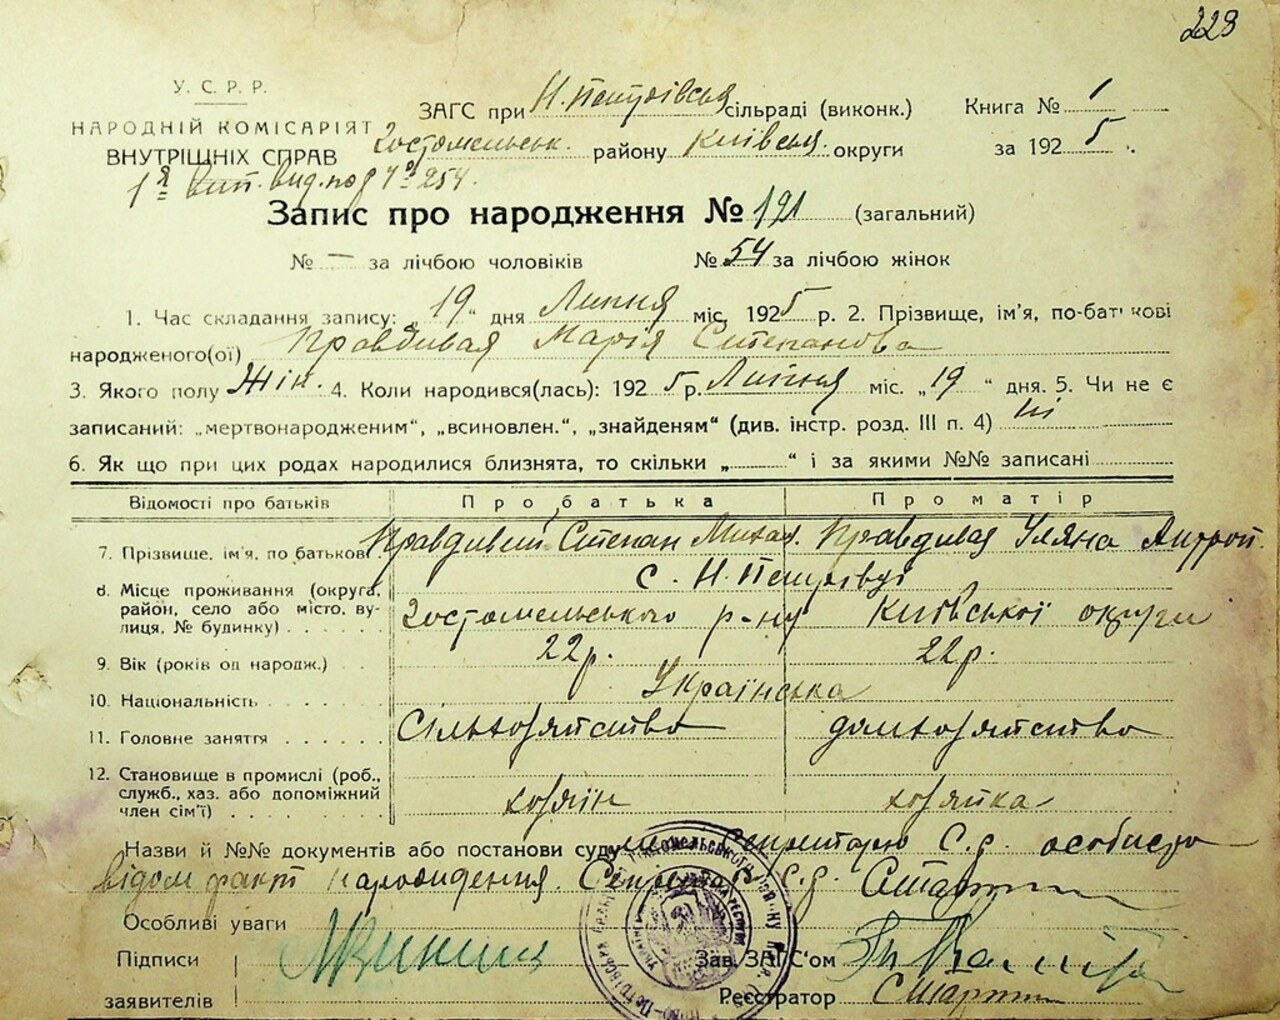 228
У. С. Р. Р.
НАРОДНІЙ КОМІСАРІЯТ
ВНУТРІШНІХ СПРАВ
ЗАГС при Н. Петрівськ сільраді (виконк.)
Книга № 1
Гостомельськ. району Київськ. округи
за 1925
1я вип. вид. под № 254.
Запис про народження № 191 (загальний)
№ — за лічбою чоловіків
№ 54 за лічбою жінок
1. Час складання запису: „ 19 “ дня Липня міс. 1925 р. 2. Прізвище, ім'я, по-батькові
народженого(ої) Правдивая Марія Степанова
3. Якого полу Жін. 4. Коли народився(лась): 1925 р. Липня міс. „ 19 “ дня. 5. Чи не є
записаний: „мертвонародженим“, „всиновлен.“, „знайденям“ (див. інстр. розд. III п. 4) ні
6. Як що при цих родах народилися близнята, то скільки „ “ і за якими №№ записані
Відомості про батьків Про батька Про матір
7. Прізвище, ім'я, по батьков Правдивий Степан Михал. Правдивая Уляна Антроп.
с. Н. Петрівці
8. Місце проживання (округа, район, село або місто, вулиця, № будинку) Гостомельського р-ну Київської округи
9. Вік (років од народж.) 22 р. 22 р.
10. Національність Українська
11. Головне заняття Сільхозяйство домхозяйство
12. Становище в промислі (роб., служб., хаз. або допоміжний член сім'ї) хозяїн хозяйка
Назви й №№ документів або постанови суду Секретарю С.р. особисто
відом факт народидення. Секретар С.р.
Особливі уваги
Підписи
заявителів
Зав. ЗАГС'ом
Реєстратор